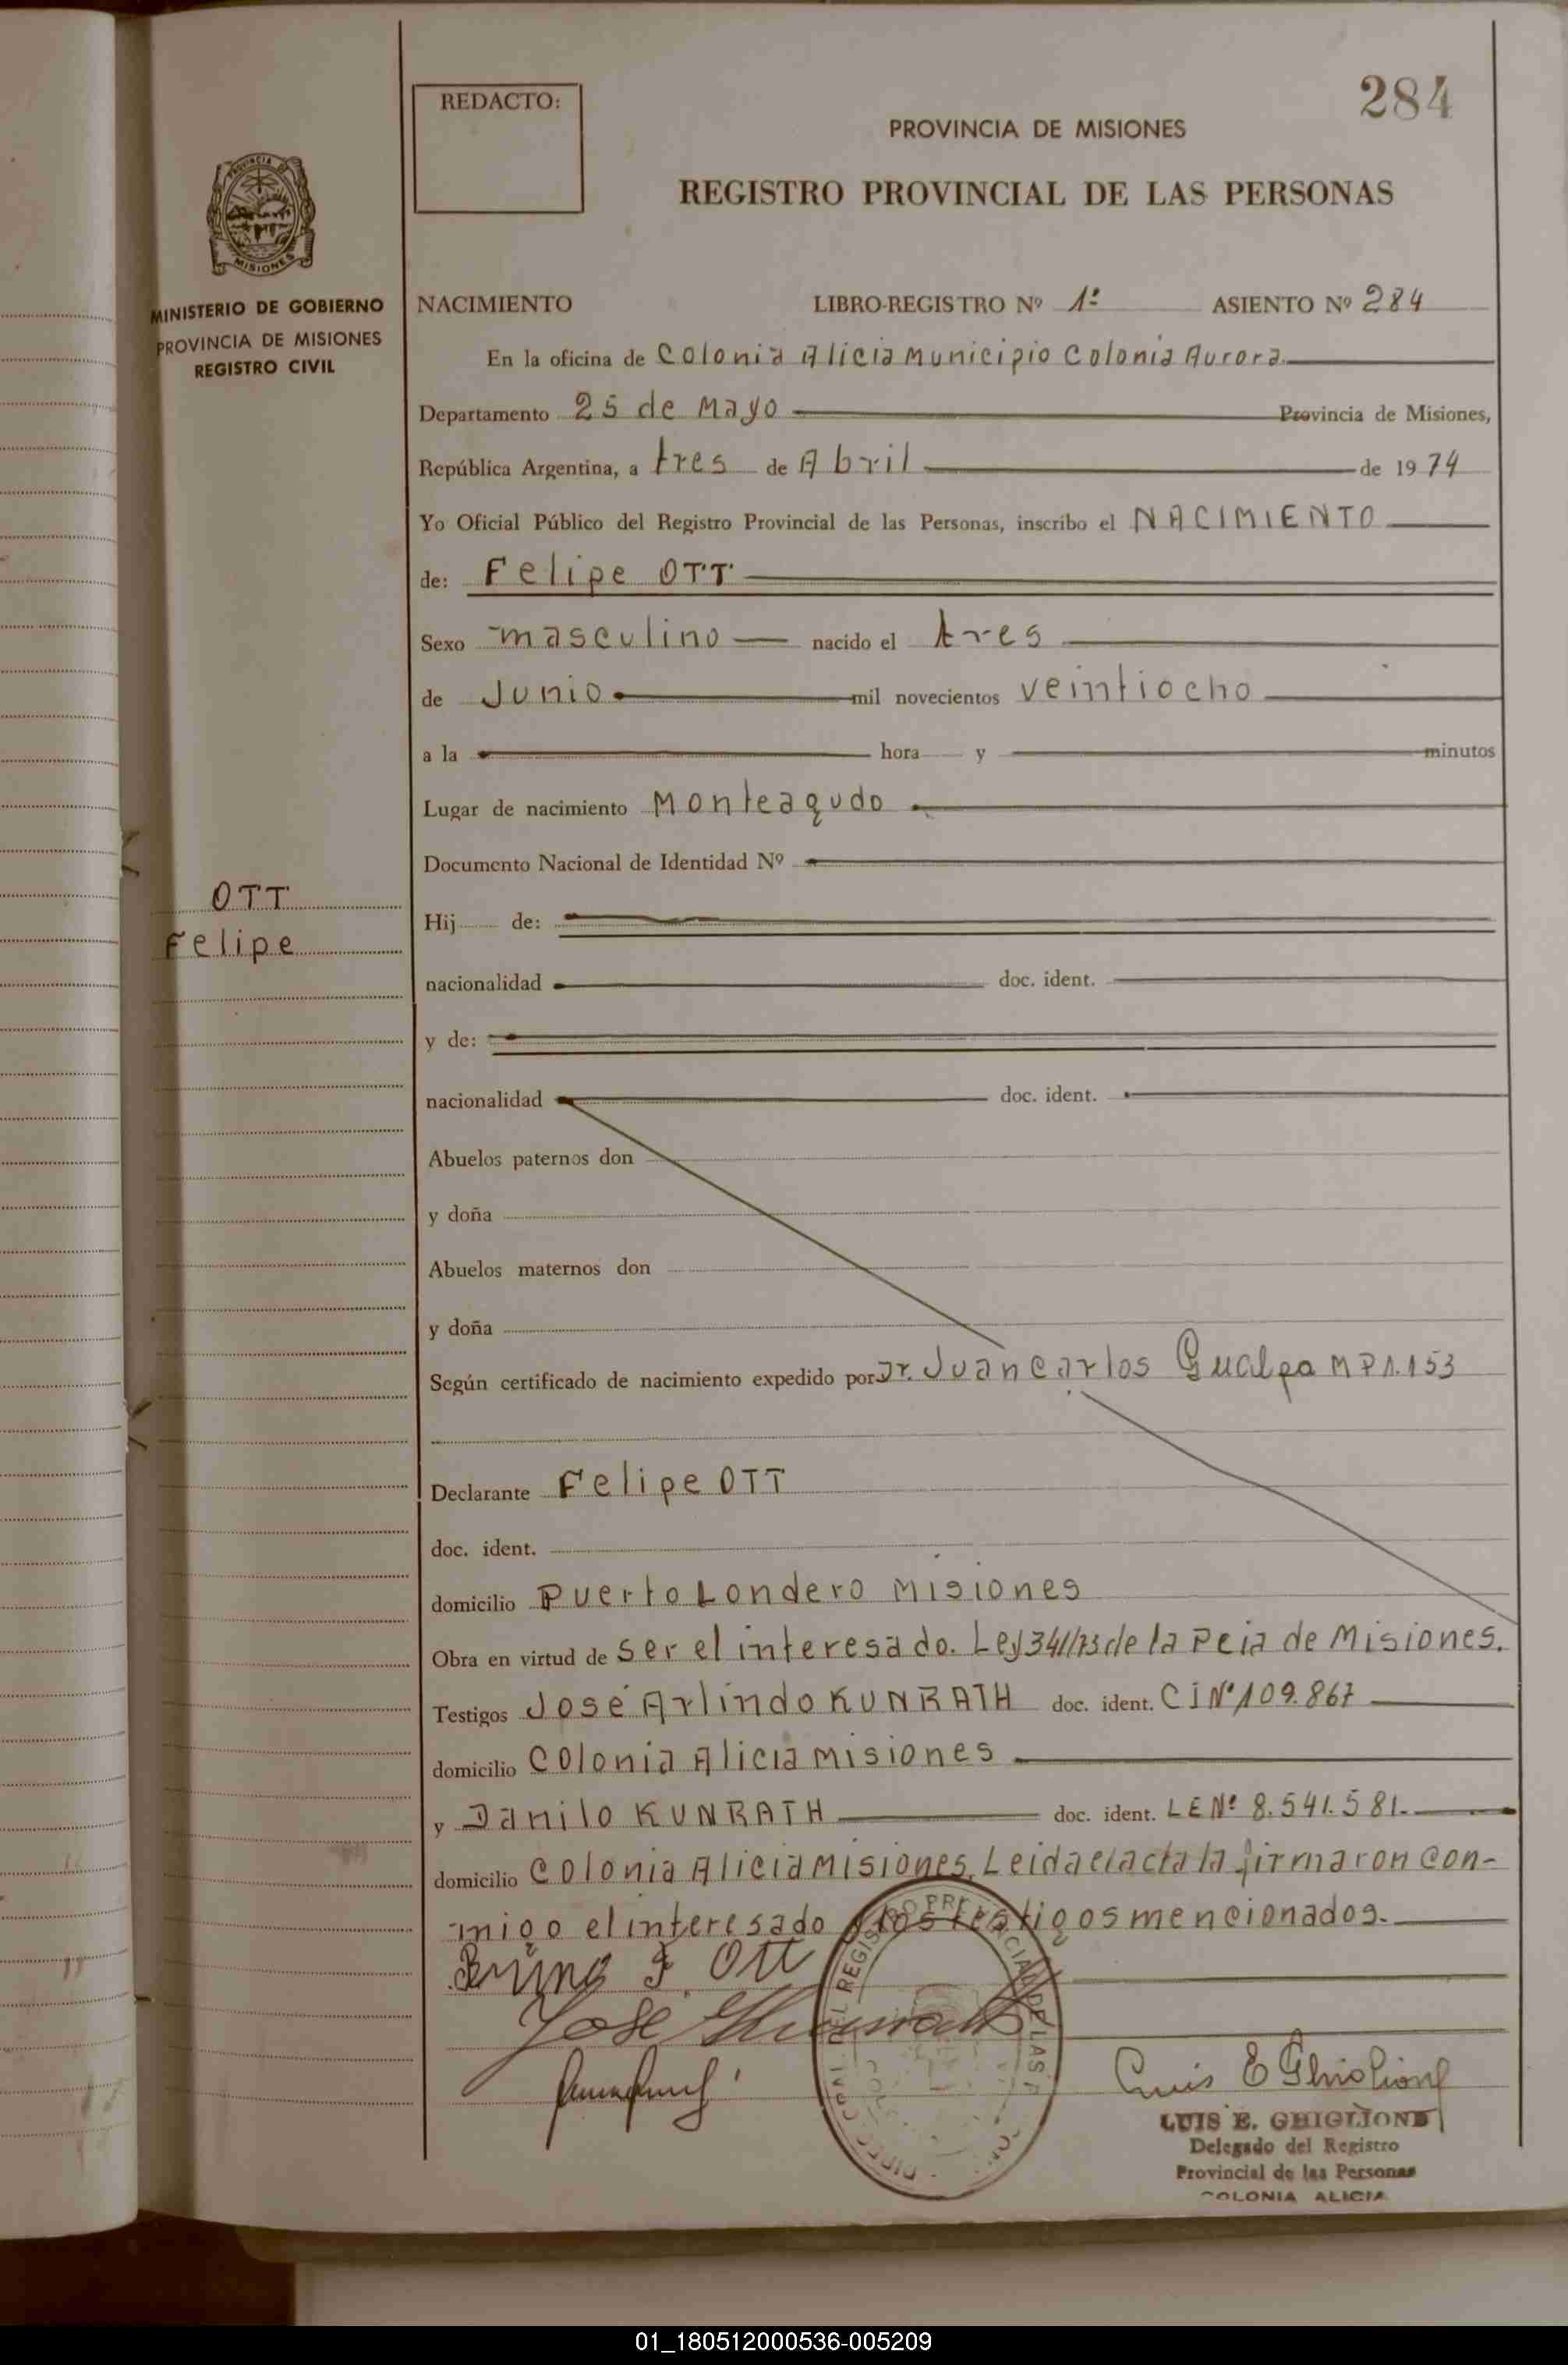 284
REDACTO:
PROVINCIA DE MISIONES
REGISTRO PROVINCIAL DE LAS PERSONAS
PROVINCIA DE
MISIONES
MINISTERIO DE GOBIERNO
PROVINCIA DE MISIONES
REGISTRO CIVIL
NACIMIENTO LIBRO-REGISTRO Nº 1º ASIENTO Nº 284
En la oficina de Colonia Alicia Municipio Colonia Aurora
Departamento 25 de Mayo Provincia de Misiones,
República Argentina, a tres de Abril de 1974
Yo Oficial Público del Registro Provincial de las Personas, inscribo el NACIMIENTO
de: Felipe OTT
Sexo masculino nacido el tres
de Junio mil novecientos veintiocho
a la hora y minutos
Lugar de nacimiento Monteagudo
Documento Nacional de Identidad Nº
OTT
Felipe
Hij de:
nacionalidad doc. ident.
y de:
nacionalidad doc. ident.
Abuelos paternos don
y doña
Abuelos maternos don
y doña
Según certificado de nacimiento expedido por Dr. Juan Carlos Gualpa MP1.153
Declarante Felipe OTT
doc. ident.
domicilio Puerto Londero Misiones
Obra en virtud de ser el interesado. Ley 341/73 de la Pcia de Misiones.
Testigos José Arlindo KUNRATH doc. ident. CI Nº 109.867
domicilio Colonia Alicia Misiones
y Danilo KUNRATH doc. ident. LE Nº 8.541.581.
domicilio Colonia Alicia Misiones. Leida el acta la firmaron con-
migo el interesado y los testigos mencionados.
Ott
José
Luis E Ghiglione
LUIS E. GHIGLIONE
Delegado del Registro
Provincial de las Personas
COLONIA ALICIA
01_180512000536-005209